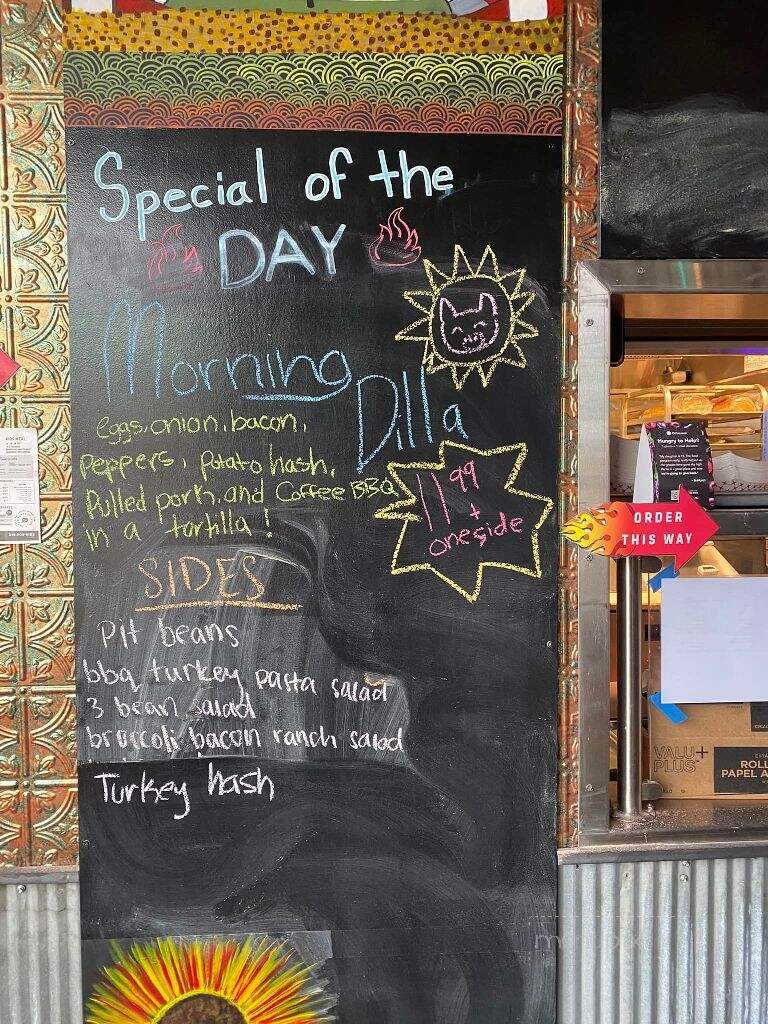 Special of the
DAY
Morning
Dilla
eggs, onion, bacon,
peppers, potato hash,
Pulled pork, and Coffee BBQ
in a tortilla!
11.99
+
one side
SIDES
Pit beans
bbq turkey pasta salad
3 bean salad
broccoli bacon ranch salad
Turkey hash
Hungry to Help?
ORDER
THIS WAY
VALU+
PLUS
ROLL
PAPEL A